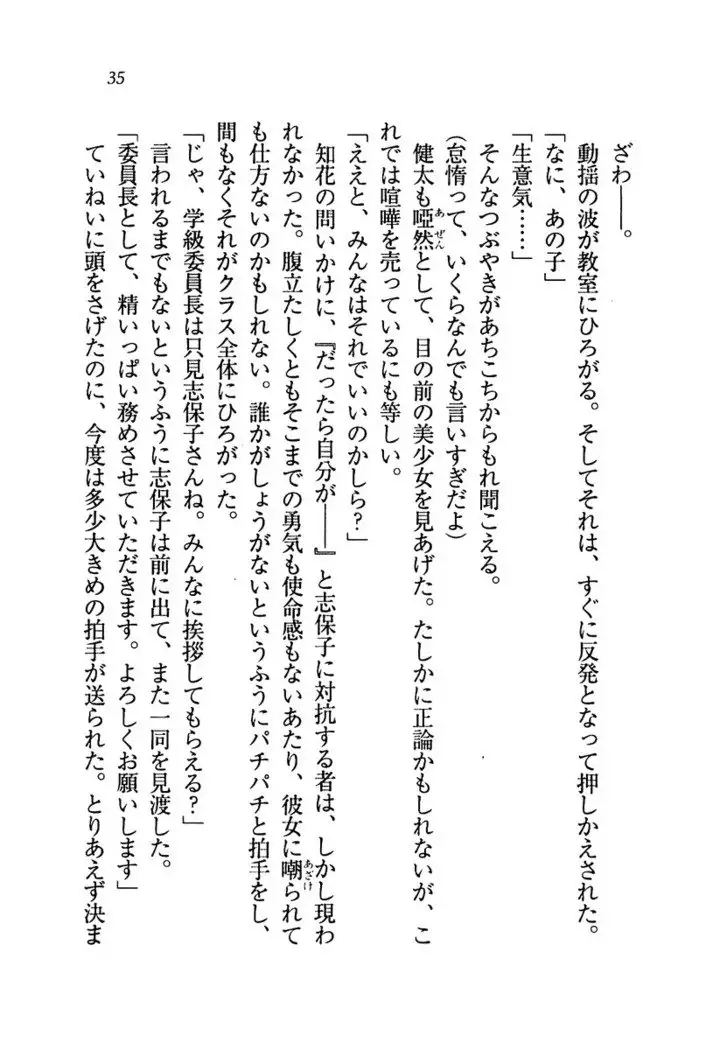 35
ざわ――。
動揺の波が教室にひろがる。そしてそれは、すぐに反発となって押しかえされた。
「なに、あの子」
「生意気……」
そんなつぶやきがあちこちからもれ聞こえる。
(怠惰って、いくらなんでも言いすぎだよ)
健太も啞然として、目の前の美少女を見あげた。たしかに正論かもしれないが、こ
れでは喧嘩を売っているにも等しい。
「ええと、みんなはそれでいいのかしら?」
知花の問いかけに、『だったら自分が――』と志保子に対抗する者は、しかし現わ
れなかった。腹立たしくともそこまでの勇気も使命感もないあたり、彼女に嘲られて
も仕方ないのかもしれない。誰かがしょうがないというふうにパチパチと拍手をし、
間もなくそれがクラス全体にひろがった。
「じゃ、学級委員長は只見志保子さんね。みんなに挨拶してもらえる?」
言われるまでもないというふうに志保子は前に出て、また一同を見渡した。
「委員長として、精いっぱい務めさせていただきます。よろしくお願いします」
ていねいに頭をさげたのに、今度は多少大きめの拍手が送られた。とりあえず決ま